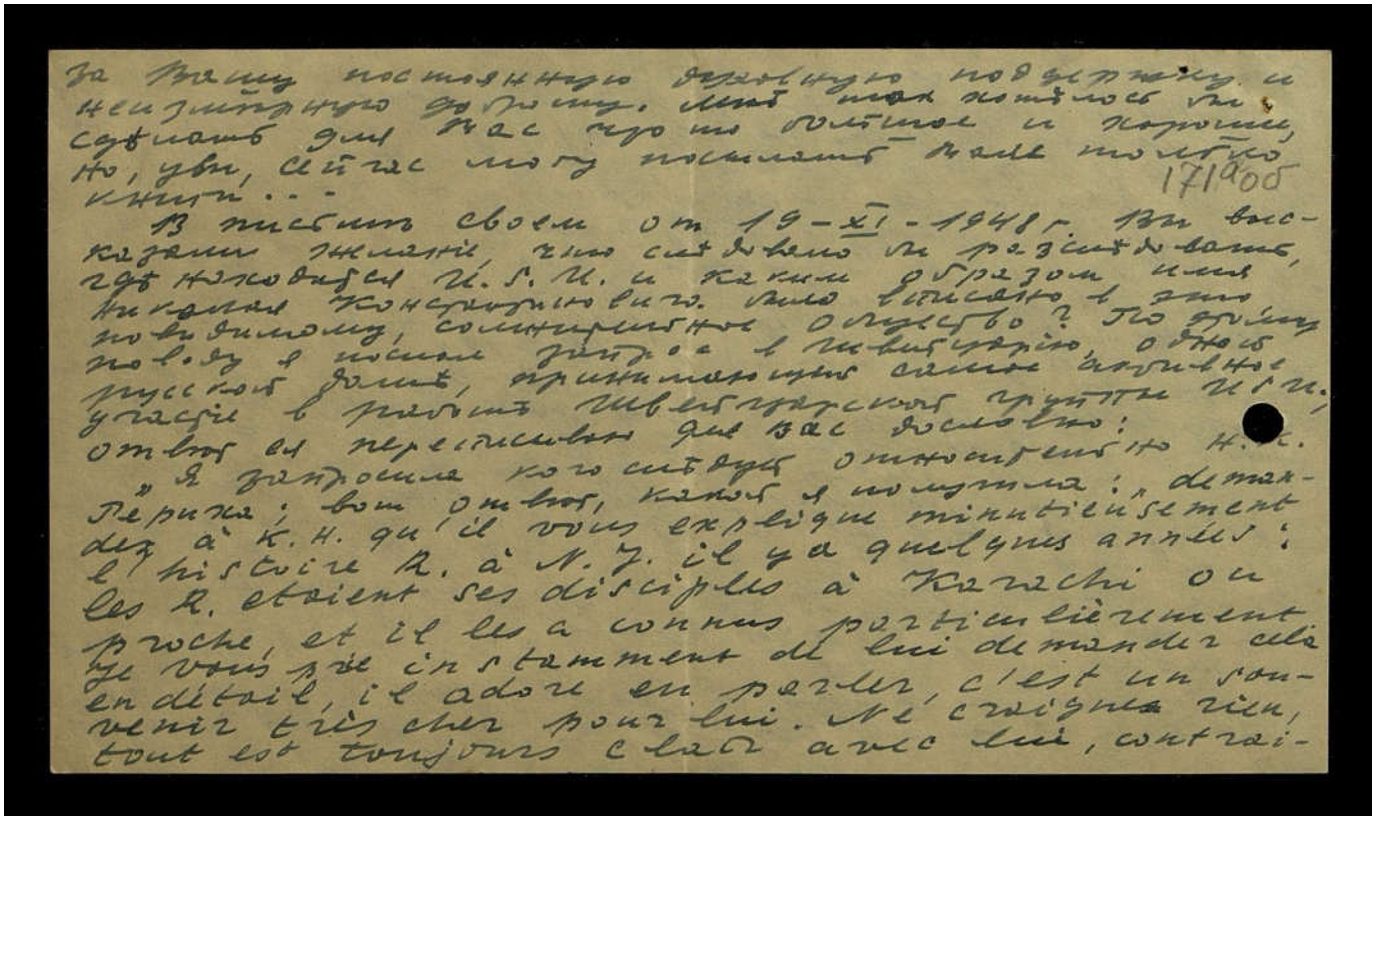 за Вашу постоянную духовную поддержку и
неизмѣрную доброту. Мнѣ так хотѣлось бы
сдѣлать для Вас что то большое и хорошее,
но, увы, сейчас могу посылать Вам только
171ª об
книги...
В письмѣ своем от 19-XI-1948 г. Вы выс-
казали желаніе, что слѣдовало бы разслѣдовать,
гдѣ находится И.Б.И. и каким образом имя
Николая Константиновича было вписано в это,
повидимому, сомнительное Общество? По этому
поводу я послал запрос в Швейцарію, одной
русской дамѣ, принимающей самое активное
участіе в работѣ Швейцарской группы И.Б.И.;
отвѣт ея переписываю для Вас дословно:
„Я запросила кого слѣдует относительно Н.К.
Рериха; вот отвѣт, какой я получила: „deman-
dez à K.H. qu'il vous explique minutieusement
l'histoire R. à N.J. il y a quelques années:
les R. etaient ses disciples à Karachi ou
proche, et il les a connus particulièrement
Je vous prie instamment de lui demander cela
en détail, il adore en parler, c'est un sou-
venir très cher pour lui. Ne craignez rien,
tout est toujours clair avec lui, contrai-